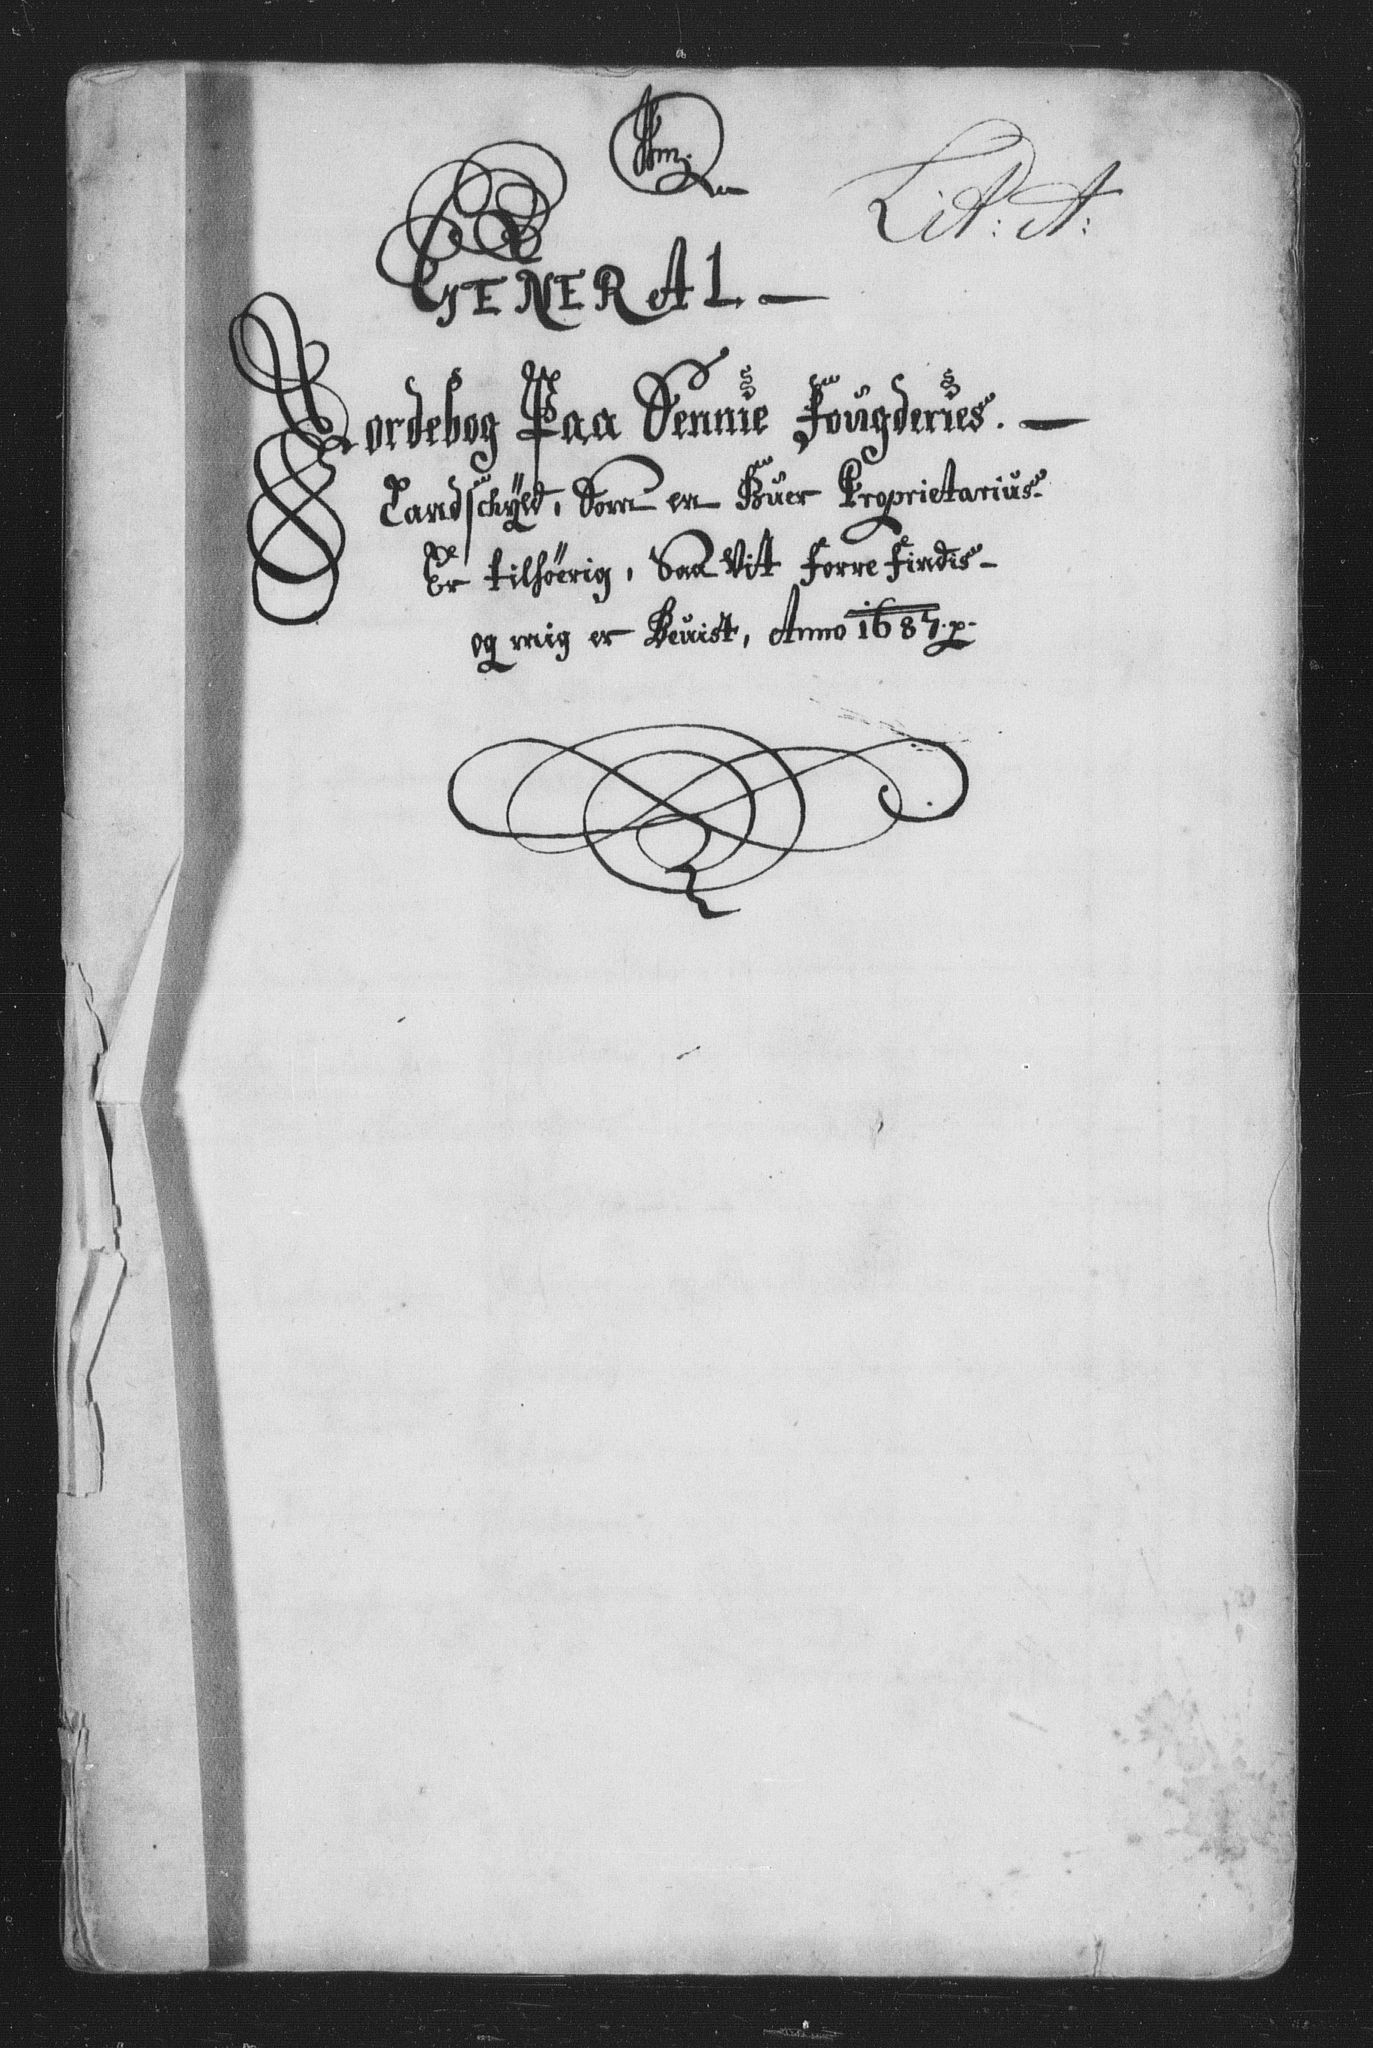 Lit: A:
GENERAL
Jordebog Paa Sennie Fougderies.
Landschÿld, Som en Huer Proprietarius
Er tilhöerig, Saa Vit forre findis
og mig er Beuist, Anno 1687.